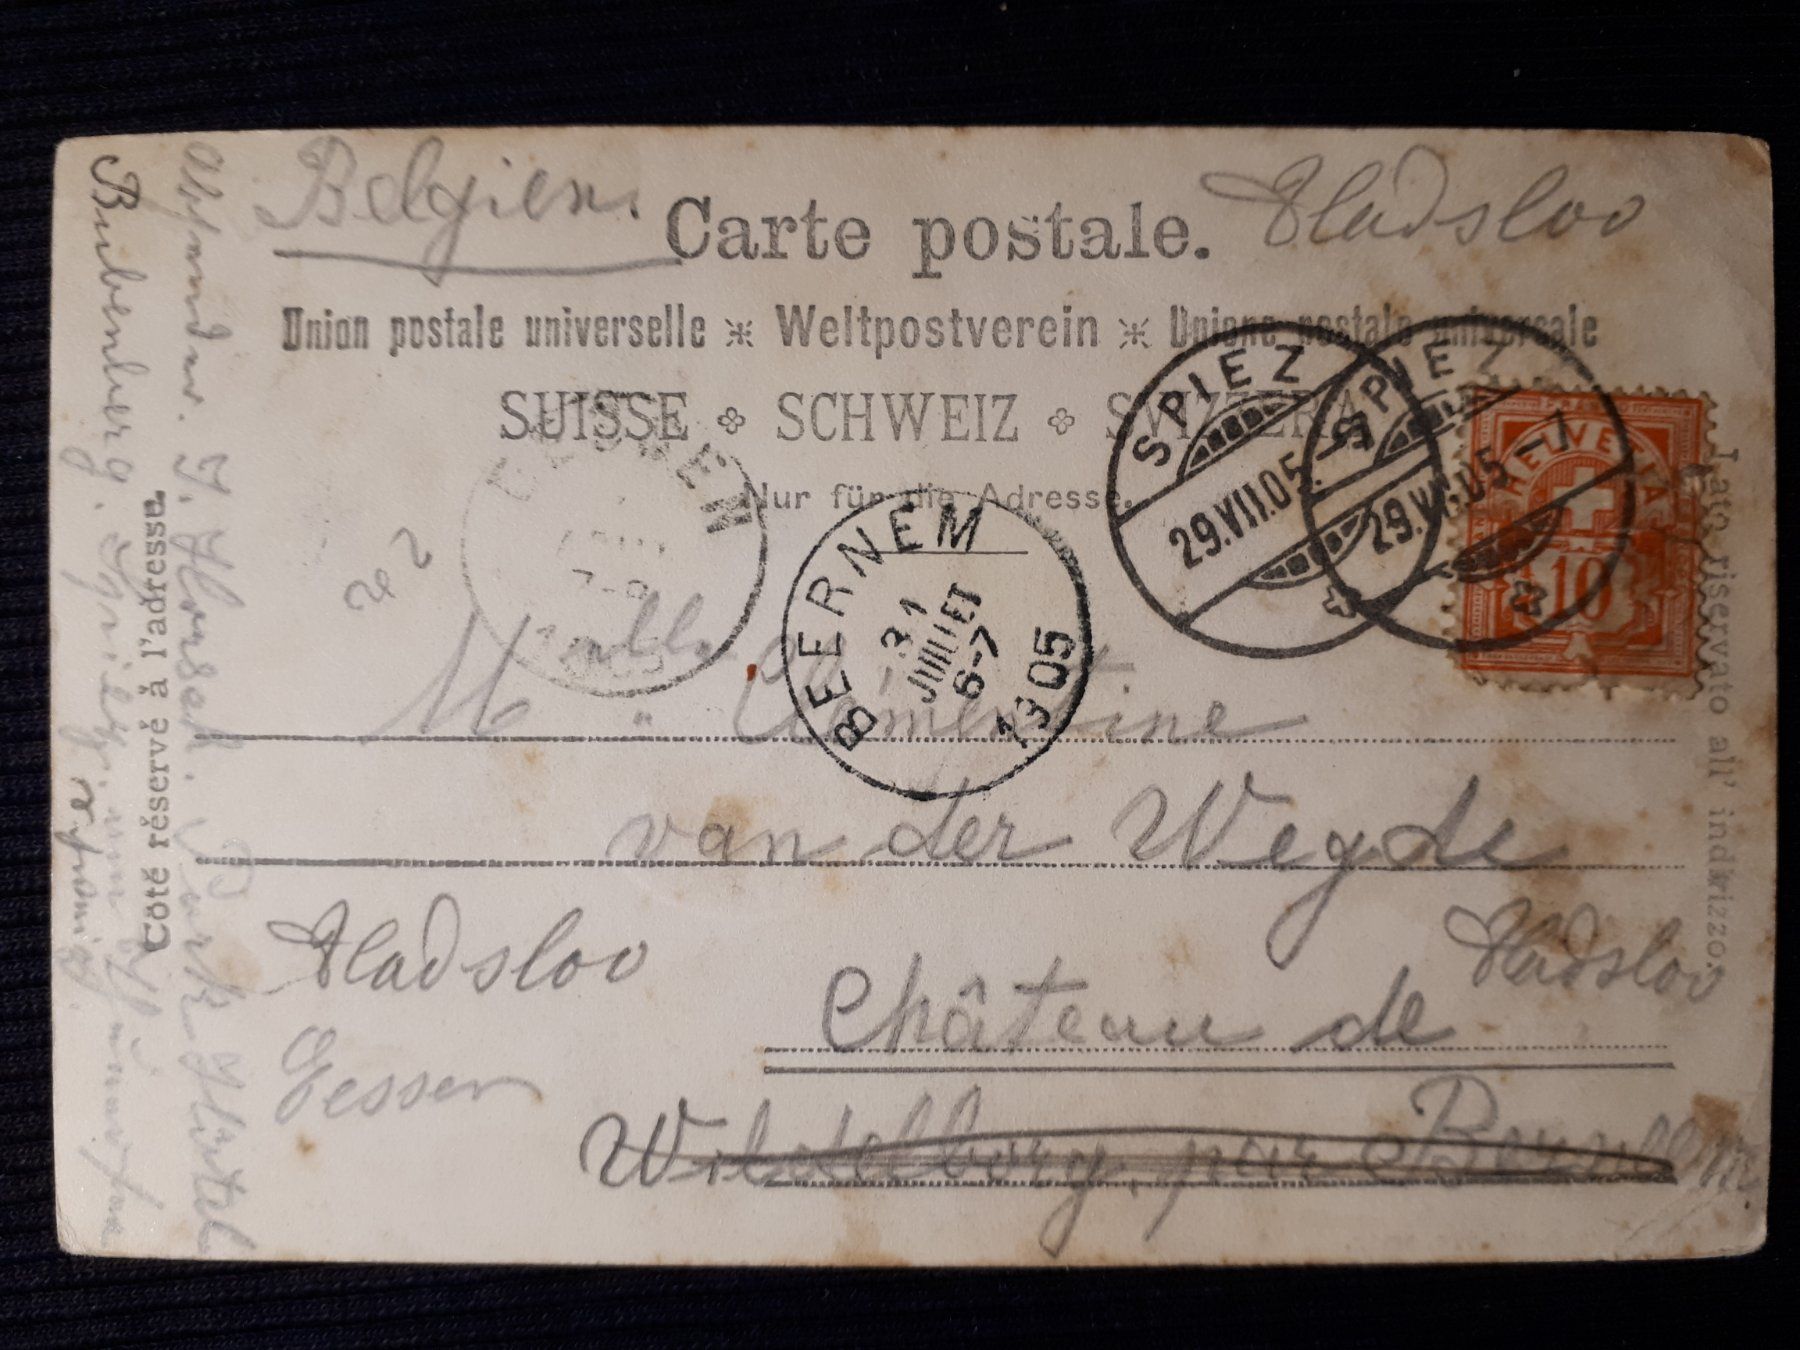 Belgien.
Carte postale.
Vladsloo
Union postale universelle Weltpostverein Unione postale universale
SUISSE SCHWEIZ SVIZZERA
Nur für die Adresse.
SPIEZ
29.VII.05.-7
SPIEZ
29.VII.05-7
HELVETIA
10
BEERNEM
31
JUILLET
6-7
1905
ESSEN
7-8
1905
Melle Clémentine
van der Wegde
Vladsloo
Château de
Vladsloo
Essen
Wildelborg, par Beernem
Côté réservé à l'adresse.
Lato riservato all' indirizzo.
Absender. J.
Park Hôtel
Bubenberg.